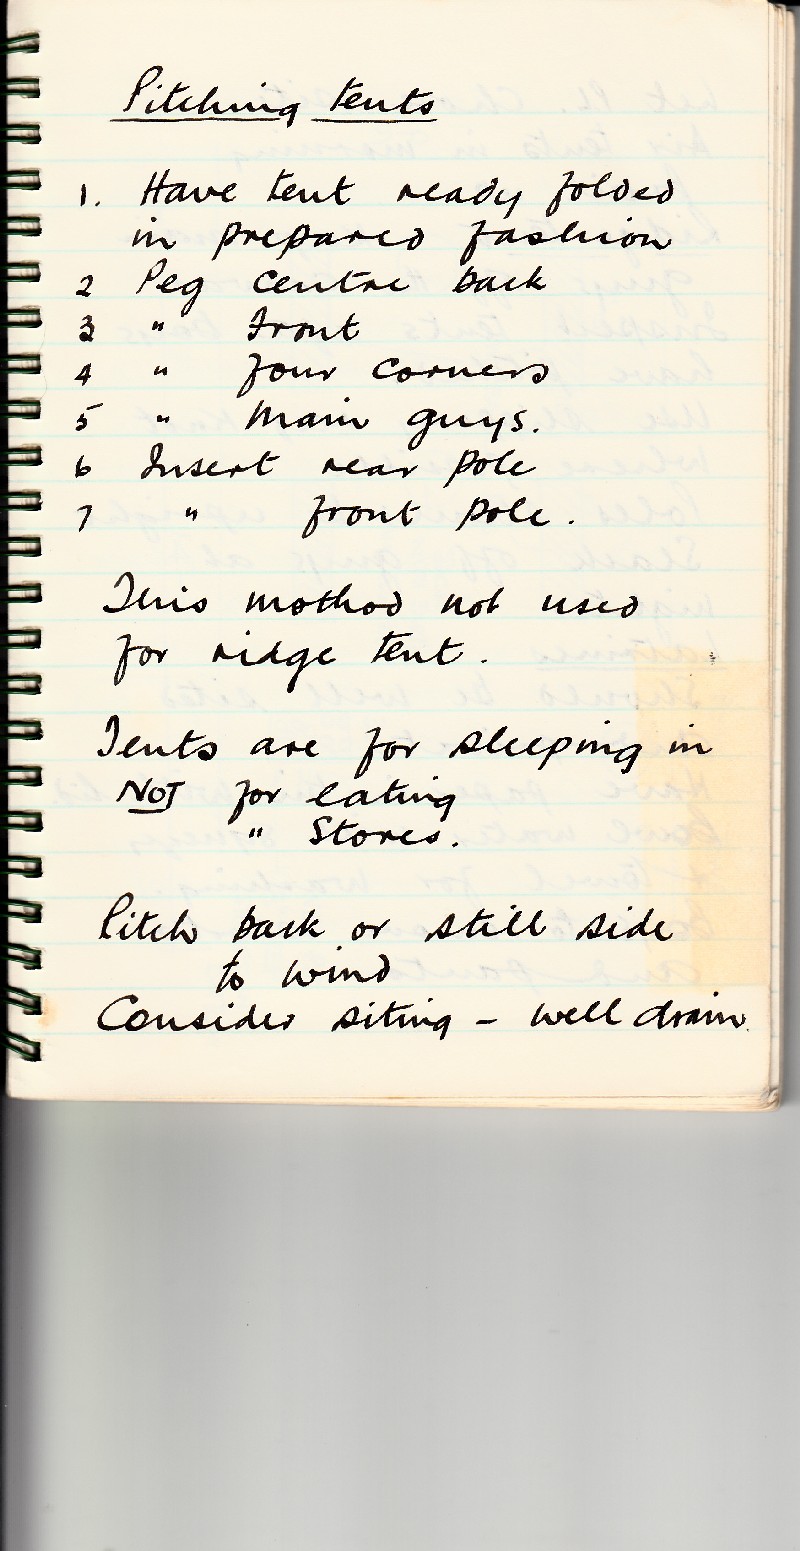 Pitching tents
1. Have tent ready folded
in prepared fashion
2 Peg centre back
3 " front
4 " four corners
5 " main guys.
6 Insert rear pole
7 " front pole.
This method not used
for ridge tent.
Tents are for sleeping in
NOT for eating
" Stores.
Pitch back or still side
to wind
Consider siting - well drain